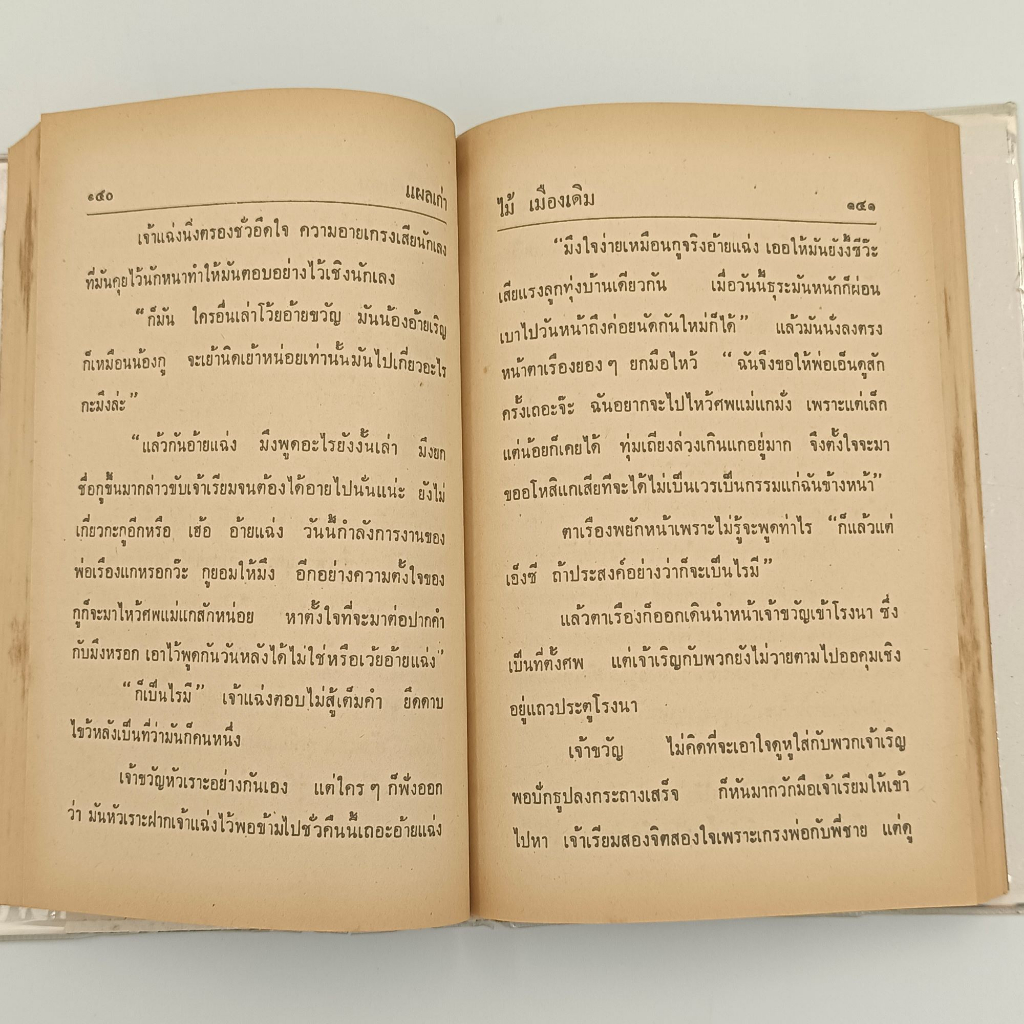 ๑๔๐ แผลเก่า
เจ้าแฉ่งนิ่งตรองชั่วอึดใจ ความอายเกรงเสียนักเลง
ที่มันคุยไว้นักหนาทำให้มันตอบอย่างไว้เชิงนักเลง
“ก็มัน ใครอื่นเล่าโว้ยอ้ายขวัญ มันน้องอ้ายเริญ
ก็เหมือนน้องกู จะเย้านิดเย้าหน่อยเท่านั้นมันไปเกี่ยวอะไร
กะมึงล่ะ”
“แล้วกันอ้ายแฉ่ง มึงพูดอะไรยังงั้นเล่า มึงยก
ชื่อกูขึ้นมากล่าวขับเจ้าเรียมจนต้องได้อายไปนั่นแน่ะ ยังไม่
เกี่ยวกะกูอีกหรือ เฮ้อ อ้ายแฉ่ง วันนี้กำลังการงานของ
พ่อเรืองแกหรอกว๊ะ กูยอมให้มึง อีกอย่างความตั้งใจของ
กูก็จะมาไหว้ศพแม่แกสักหน่อย หาตั้งใจที่จะมาต่อปากคำ
กับมึงหรอก เอาไว้พูดกันวันหลังได้ไม่ใช่หรือเว้ยอ้ายแฉ่ง”
“ก็เป็นไรมี” เจ้าแฉ่งตอบไม่สู้เต็มคำ ยึดดาบ
ไขว้หลังเป็นทีว่ามันก็คนหนึ่ง
เจ้าขวัญหัวเราะอย่างกันเอง แต่ใคร ๆ ก็ฟังออก
ว่า มันหัวเราะฝากเจ้าแฉ่งไว้พอข้ามไปชั่วคืนนี้เถอะอ้ายแฉ่ง
ไม้ เมืองเดิม ๑๔๑
“มึงใจง่ายเหมือนกูจริงอ้ายแฉ่ง เออให้มันยังงี้ซีว๊ะ
เสียแรงลูกทุ่งบ้านเดียวกัน เมื่อวันนี้ธุระมันหนักก็ผ่อน
เบาไปวันหน้าถึงค่อยนัดกันใหม่ก็ได้” แล้วมันนั่งลงตรง
หน้าตาเรืองยอง ๆ ยกมือไหว้ “ฉันจึงขอให้พ่อเอ็นดูสัก
ครั้งเถอะจ๊ะ ฉันอยากจะไปไหว้ศพแม่แกมั่ง เพราะแต่เล็ก
แต่น้อยก็เคยได้ ทุ่มเถียงล่วงเกินแกอยู่มาก จึงตั้งใจจะมา
ขออโหสิแกเสียทีจะได้ไม่เป็นเวรเป็นกรรมแก่ฉันข้างหน้า”
ตาเรืองพยักหน้าเพราะไม่รู้จะพูดท่าไร “ก็แล้วแต่
เอ็งซี ถ้าประสงค์อย่างว่าก็จะเป็นไรมี”
แล้วตาเรืองก็ออกเดินนำหน้าเจ้าขวัญเข้าโรงนา ซึ่ง
เป็นที่ตั้งศพ แต่เจ้าเริญกับพวกยังไม่วายตามไปออคุมเชิง
อยู่แถวประตูโรงนา
เจ้าขวัญ ไม่คิดที่จะเอาใจดูหูใส่กับพวกเจ้าเริญ
พอปักธูปลงกระถางเสร็จ ก็หันมากวักมือเจ้าเรียมให้เข้า
ไปหา เจ้าเรียมสองจิตสองใจเพราะเกรงพ่อกับพี่ชาย แต่ดู